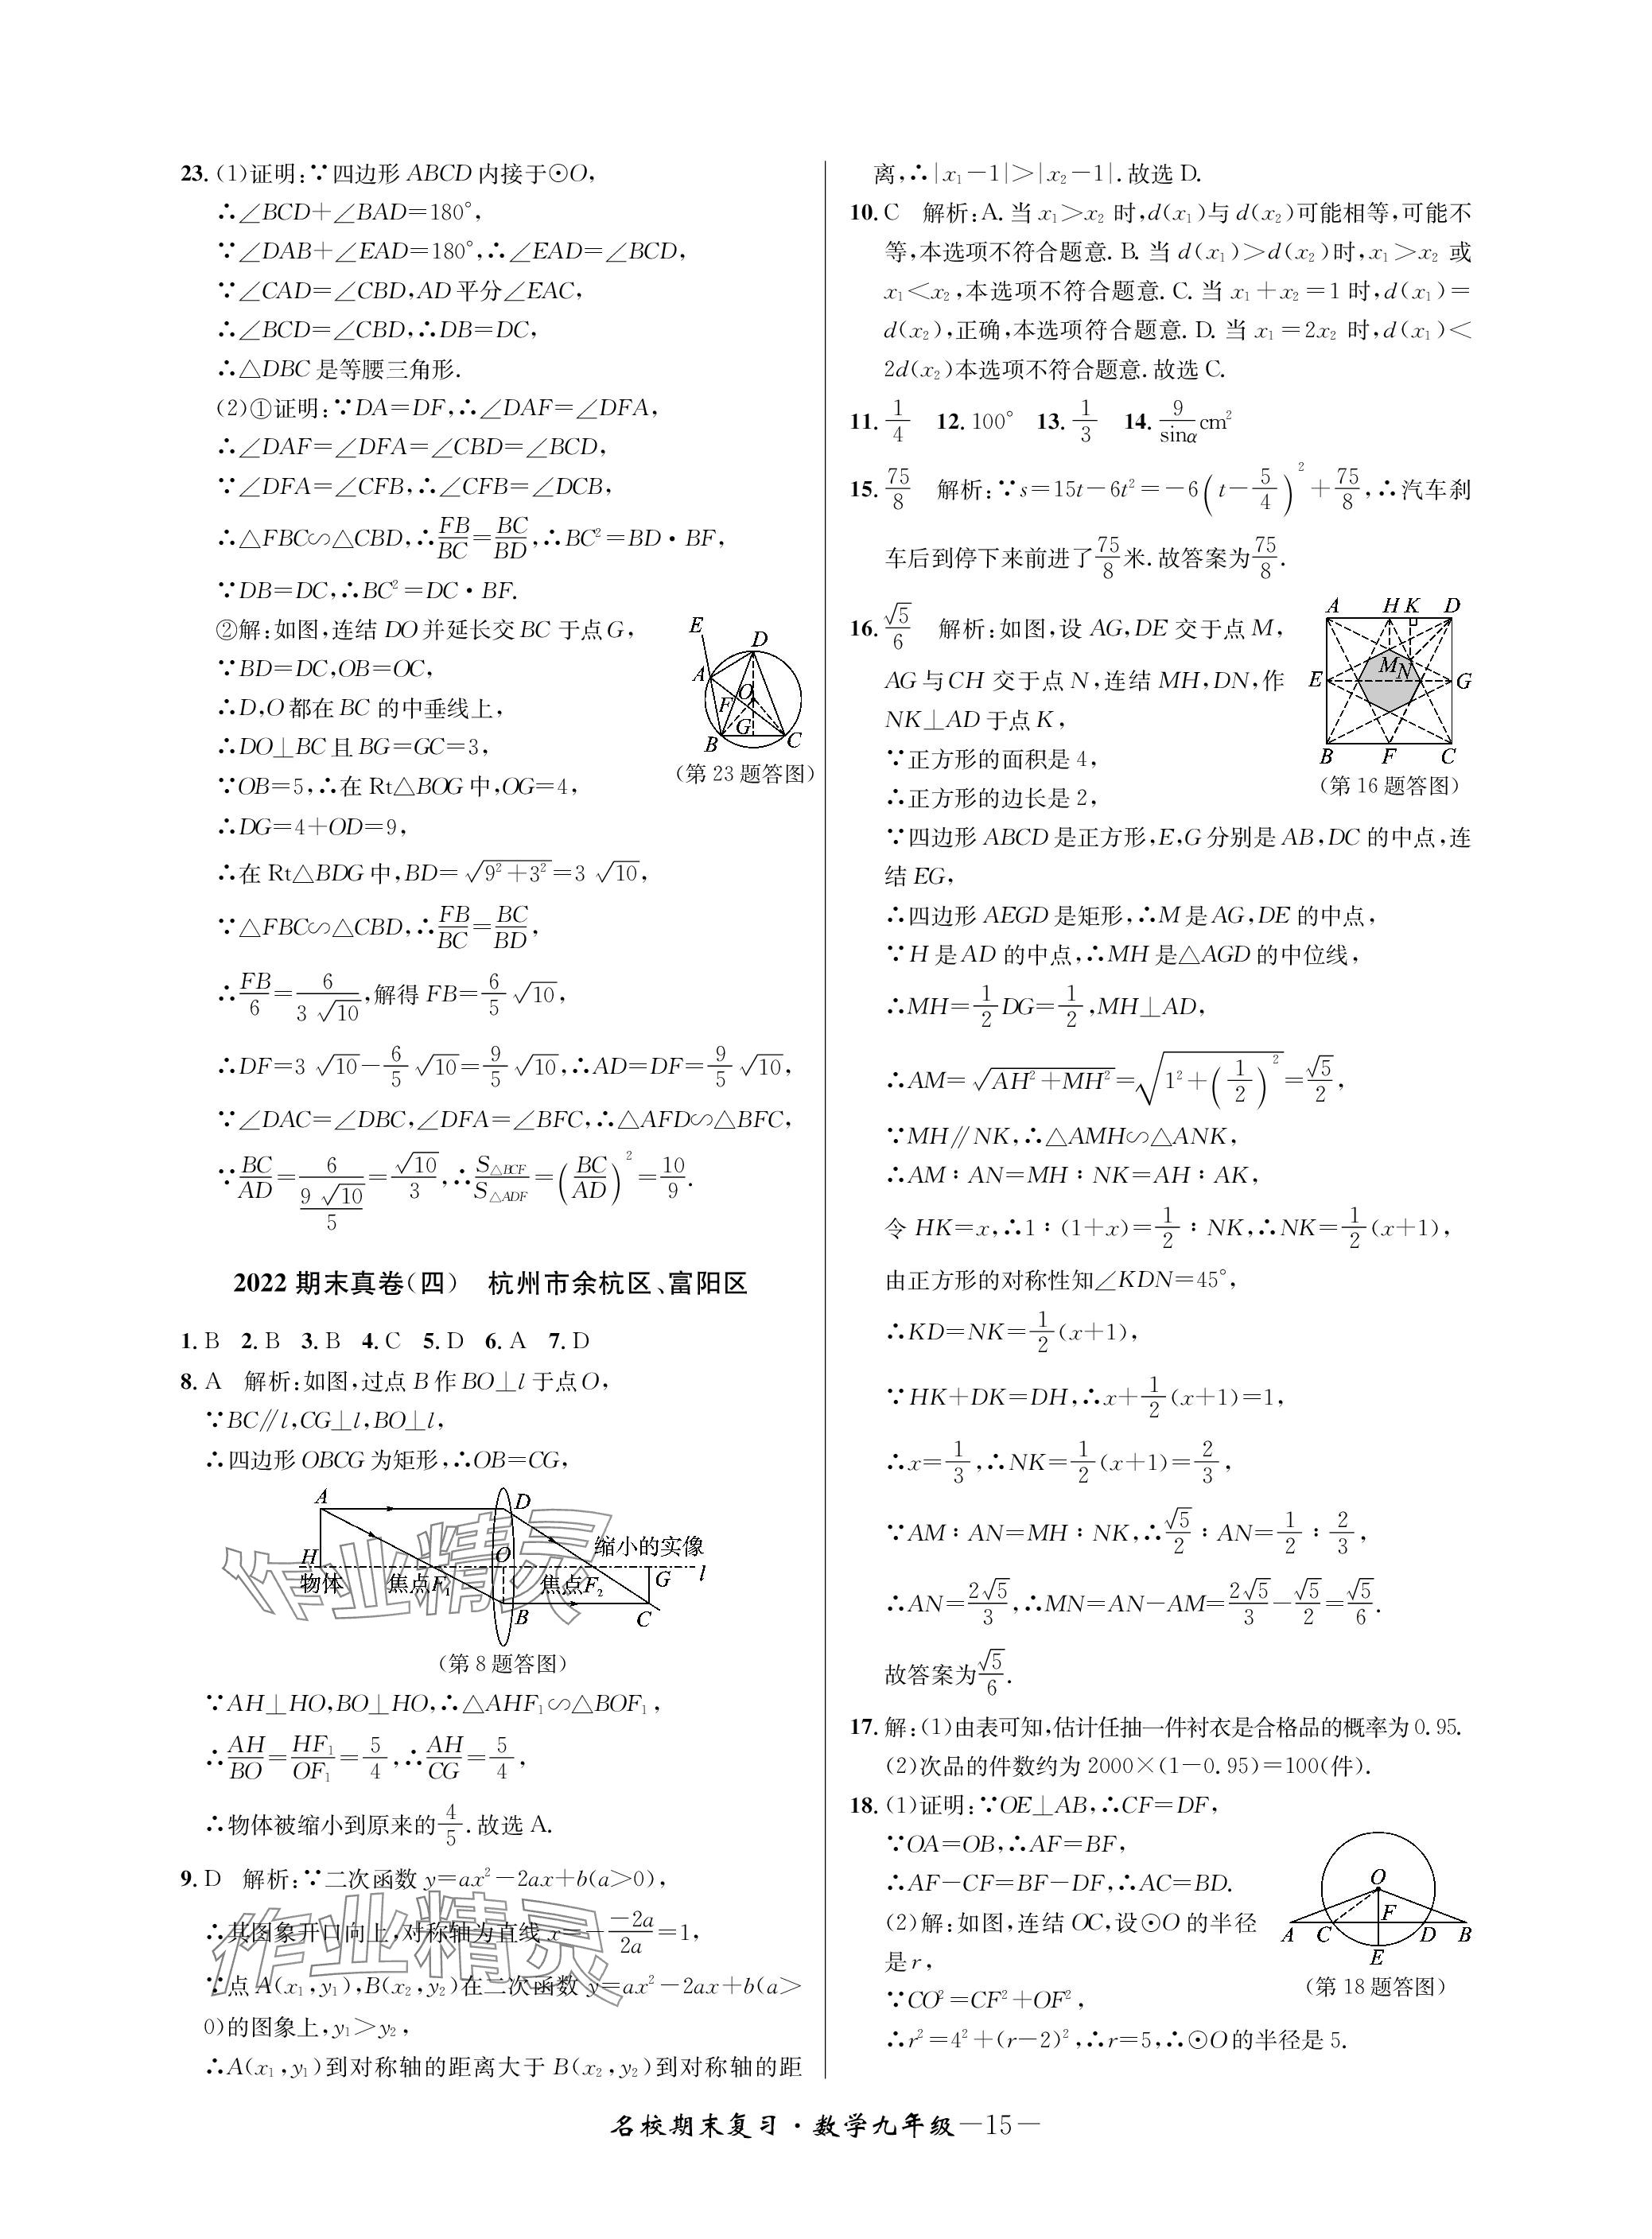 23. (1)证明:∵四边形 ABCD 内接于⊙O,
∴∠BCD+∠BAD=180°,
∵∠DAB+∠EAD=180°,∴∠EAD=∠BCD,
∵∠CAD=∠CBD,AD 平分∠EAC,
∴∠BCD=∠CBD,∴DB=DC,
∴△DBC 是等腰三角形.
(2)①证明:∵DA=DF,∴∠DAF=∠DFA,
∴∠DAF=∠DFA=∠CBD=∠BCD,
∵∠DFA=∠CFB,∴∠CFB=∠DCB,
∴△FBC∽△CBD,∴FB/BC=BC/BD,∴BC²=BD·BF,
∵DB=DC,∴BC²=DC·BF.
②解:如图,连结 DO 并延长交 BC 于点 G,
∵BD=DC,OB=OC,
∴D,O 都在 BC 的中垂线上,
∴DO⊥BC 且 BG=GC=3,
∵OB=5,∴在 Rt△BOG 中,OG=4,
∴DG=4+OD=9,
E
D
A
O
F
G
B
C
(第 23 题答图)
∴在 Rt△BDG 中,BD=√(9²+3²)=3√10,
∵△FBC∽△CBD,∴FB/BC=BC/BD,
∴FB/6=6/(3√10),解得 FB=6/5√10,
∴DF=3√10−6/5√10=9/5√10,∴AD=DF=9/5√10,
∵∠DAC=∠DBC,∠DFA=∠BFC,∴△AFD∽△BFC,
∵BC/AD=6/(9√10/5)=√10/3,∴S△BCF/S△ADF=(BC/AD)²=10/9.
2022 期末真卷(四) 杭州市余杭区、富阳区
1. B 2. B 3. B 4. C 5. D 6. A 7. D
8. A 解析:如图,过点 B 作 BO⊥l 于点 O,
∵BC∥l,CG⊥l,BO⊥l,
∴四边形 OBCG 为矩形,∴OB=CG,
A
D
H
O
缩小的实像
物体
焦点F₁
焦点F₂
G
l
B
C
作业精灵
(第 8 题答图)
∵AH⊥HO,BO⊥HO,∴△AHF₁∽△BOF₁,
∴AH/BO=HF₁/OF₁=5/4,∴AH/CG=5/4,
∴物体被缩小到原来的4/5.故选 A.
9. D 解析:∵二次函数 y=ax²−2ax+b(a>0),
∴其图象开口向上,对称轴为直线 x=−(−2a)/2a=1,
作业精灵
∵点 A(x₁,y₁),B(x₂,y₂)在二次函数 y=ax²−2ax+b(a>
0)的图象上,y₁>y₂,
∴A(x₁,y₁)到对称轴的距离大于 B(x₂,y₂)到对称轴的距
离,∴|x₁−1|>|x₂−1|.故选 D.
10. C 解析:A. 当 x₁>x₂ 时,d(x₁)与 d(x₂)可能相等,可能不
等,本选项不符合题意. B. 当 d(x₁)>d(x₂)时,x₁>x₂ 或
x₁<x₂,本选项不符合题意. C. 当 x₁+x₂=1 时,d(x₁)=
d(x₂),正确,本选项符合题意. D. 当 x₁=2x₂ 时,d(x₁)<
2d(x₂)本选项不符合题意.故选 C.
11. 1/4 12. 100° 13. 1/3 14. 9/sinα cm²
15. 75/8 解析:∵s=15t−6t²=−6(t−5/4)²+75/8,∴汽车刹
车后到停下来前进了75/8米.故答案为75/8.
16. √5/6 解析:如图,设 AG,DE 交于点 M,
AG 与 CH 交于点 N,连结 MH,DN,作
NK⊥AD 于点 K,
∵正方形的面积是 4,
∴正方形的边长是 2,
A
H
K
D
M
N
E
G
B
F
C
(第 16 题答图)
∵四边形 ABCD 是正方形,E,G 分别是 AB,DC 的中点,连
结 EG,
∴四边形 AEGD 是矩形,∴M 是 AG,DE 的中点,
∵H 是 AD 的中点,∴MH 是△AGD 的中位线,
∴MH=1/2DG=1/2,MH⊥AD,
∴AM=√(AH²+MH²)=√(1²+(1/2)²)=√5/2,
∵MH∥NK,∴△AMH∽△ANK,
∴AM∶AN=MH∶NK=AH∶AK,
令 HK=x,∴1∶(1+x)=1/2∶NK,∴NK=1/2(x+1),
由正方形的对称性知∠KDN=45°,
∴KD=NK=1/2(x+1),
∵HK+DK=DH,∴x+1/2(x+1)=1,
∴x=1/3,∴NK=1/2(x+1)=2/3,
∵AM∶AN=MH∶NK,∴√5/2∶AN=1/2∶2/3,
∴AN=2√5/3,∴MN=AN−AM=2√5/3−√5/2=√5/6.
故答案为√5/6.
17. 解:(1)由表可知,估计任抽一件衬衣是合格品的概率为 0.95.
(2)次品的件数约为 2000×(1−0.95)=100(件).
18. (1)证明:∵OE⊥AB,∴CF=DF,
∵OA=OB,∴AF=BF,
∴AF−CF=BF−DF,∴AC=BD.
(2)解:如图,连结 OC,设⊙O 的半径
是 r,
O
F
A
C
D
B
E
(第 18 题答图)
∵CO²=CF²+OF²,
∴r²=4²+(r−2)²,∴r=5,∴⊙O 的半径是 5.
名校期末复习·数学九年级—15—